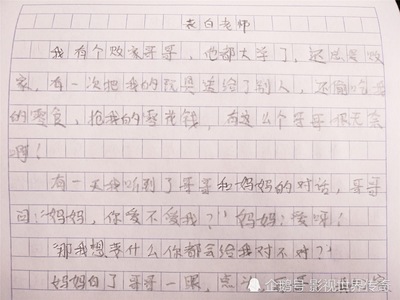 表白老师
我有个败家哥哥，他都大学了，还总是败
家，有一次把我的玩具送给了别人，还偷吃我
的零食，抢我的零花钱，有这么个哥哥很无奈
啊！
有一天我听到了哥哥和妈妈的对话，哥哥
问：“妈妈，你爱不爱我？”妈妈：爱呀！
“那我想要什么你都会给我对不对？”
妈妈白了哥哥一眼，点
企鹅号 影视世界传奇